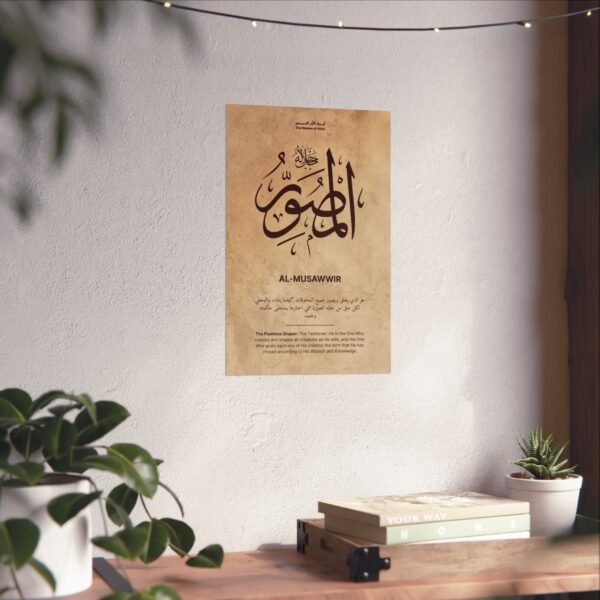 The Names of Allah
جل جلاله
المصور
AL-MUSAWWIR
هو الذي يخلق ويصور جميع المخلوقات كيفما يشاء، والمعطي
لكل خلق من خلقه الصورة التي اختارها بمقتضى حكمته
وعلمه.
The Flawless Shaper, The Fashioner. He is the One Who
creates and shapes all creatures as He wills, and the One
Who gives each one of His creation the form that He has
chosen according to His Wisdom and Knowledge.
YOUR WAY
HOME